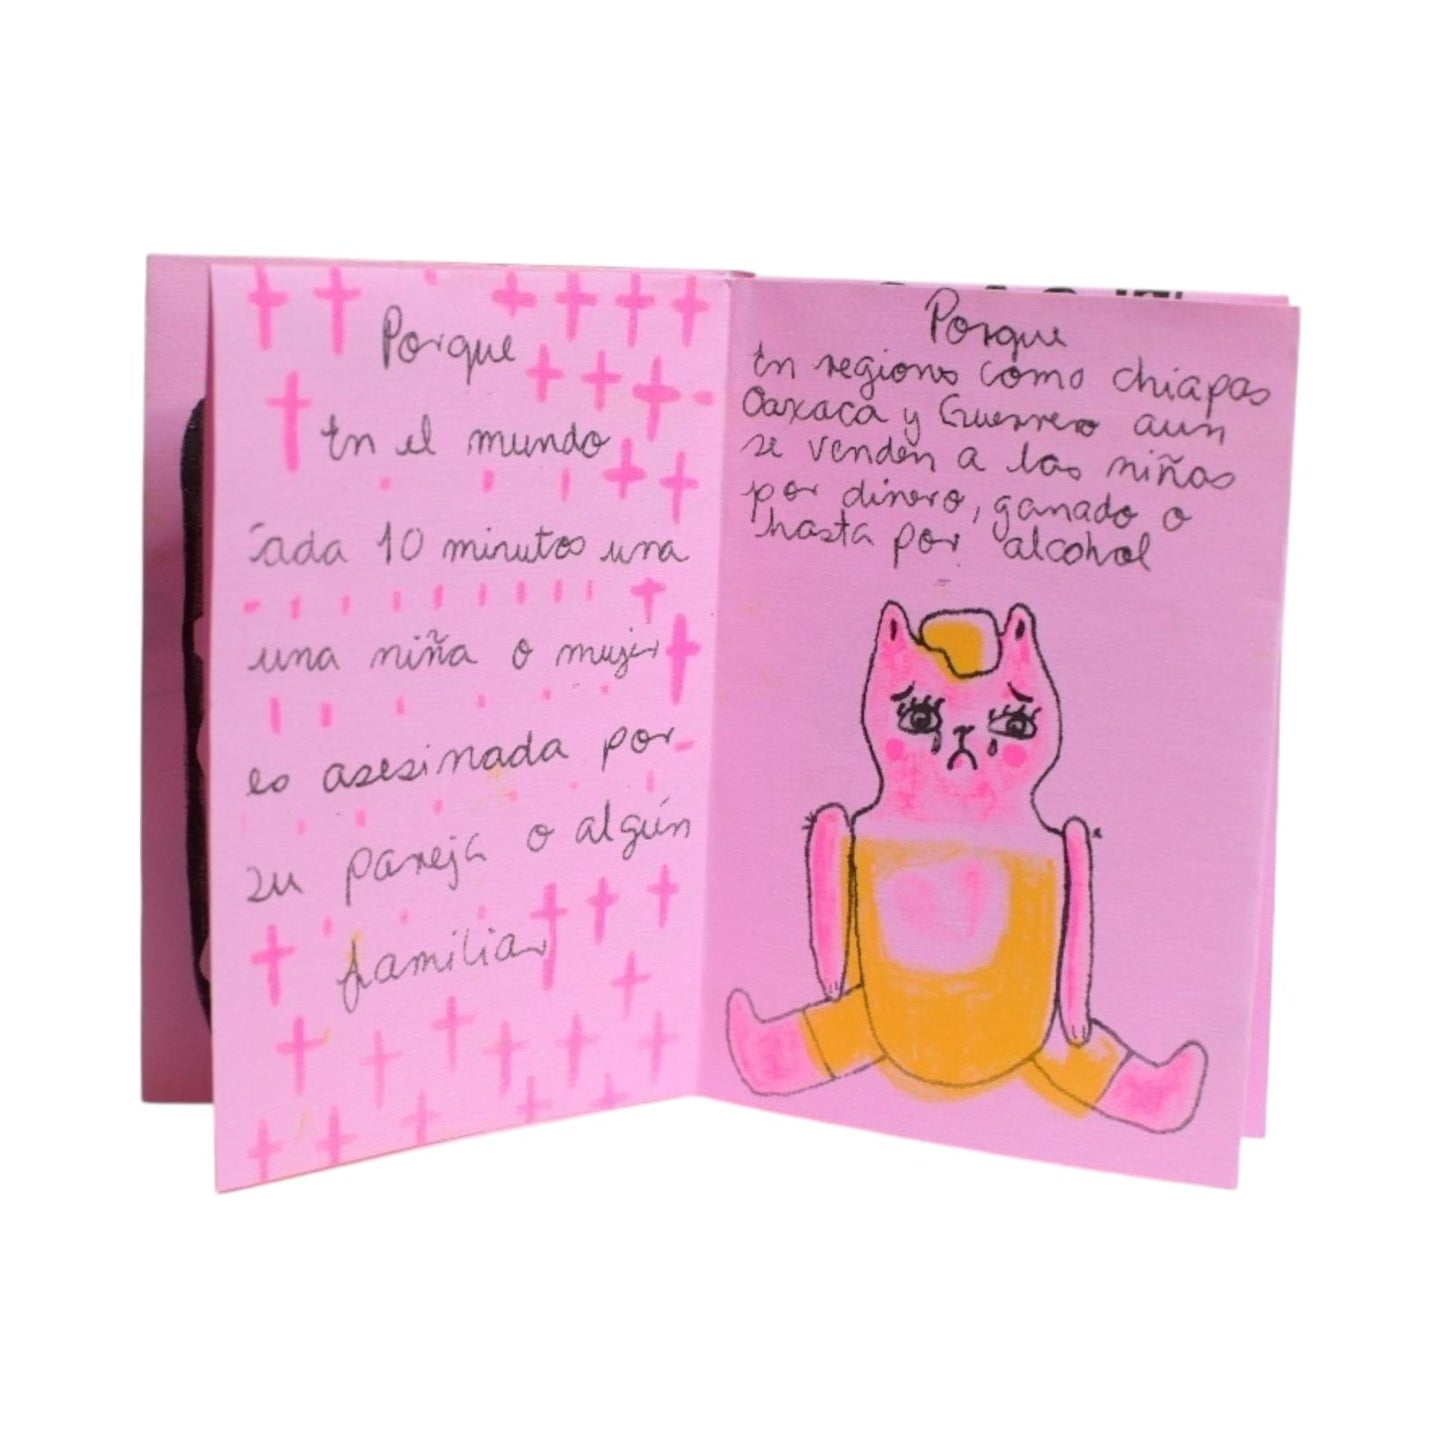 Porque
En el mundo
Cada 10 minutos una
una niña o mujer
es asesinada por
su pareja o algún
familiar
Porque
En regiones como chiapas
Oaxaca y Guerrero aun
se venden a las niñas
por dinero, ganado o
hasta por alcohol